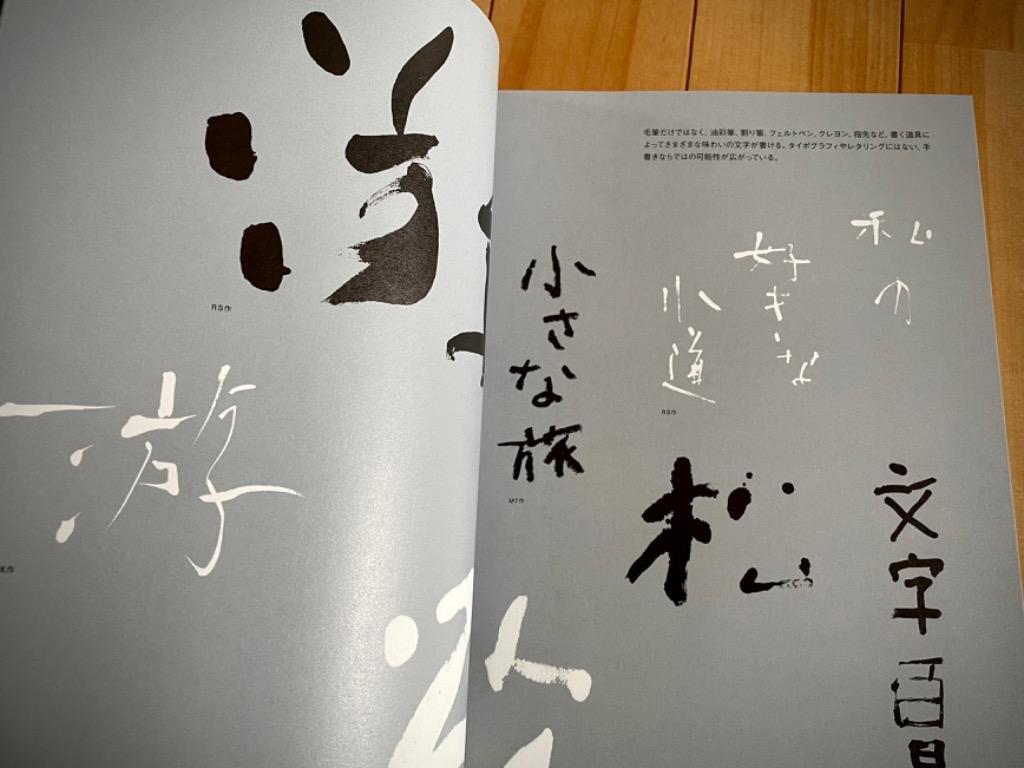 RS作
游
K作
毛筆だけではなく、油彩筆、割り箸、フェルトペン、クレヨン、指先など、書く道具に
よってさまざまな味わいの文字が書ける。タイポグラフィやレタリングにはない、手
書きならではの可能性が広がっている。
私の
好きな
小道
RS作
小さな旅
MT作
松
文字百